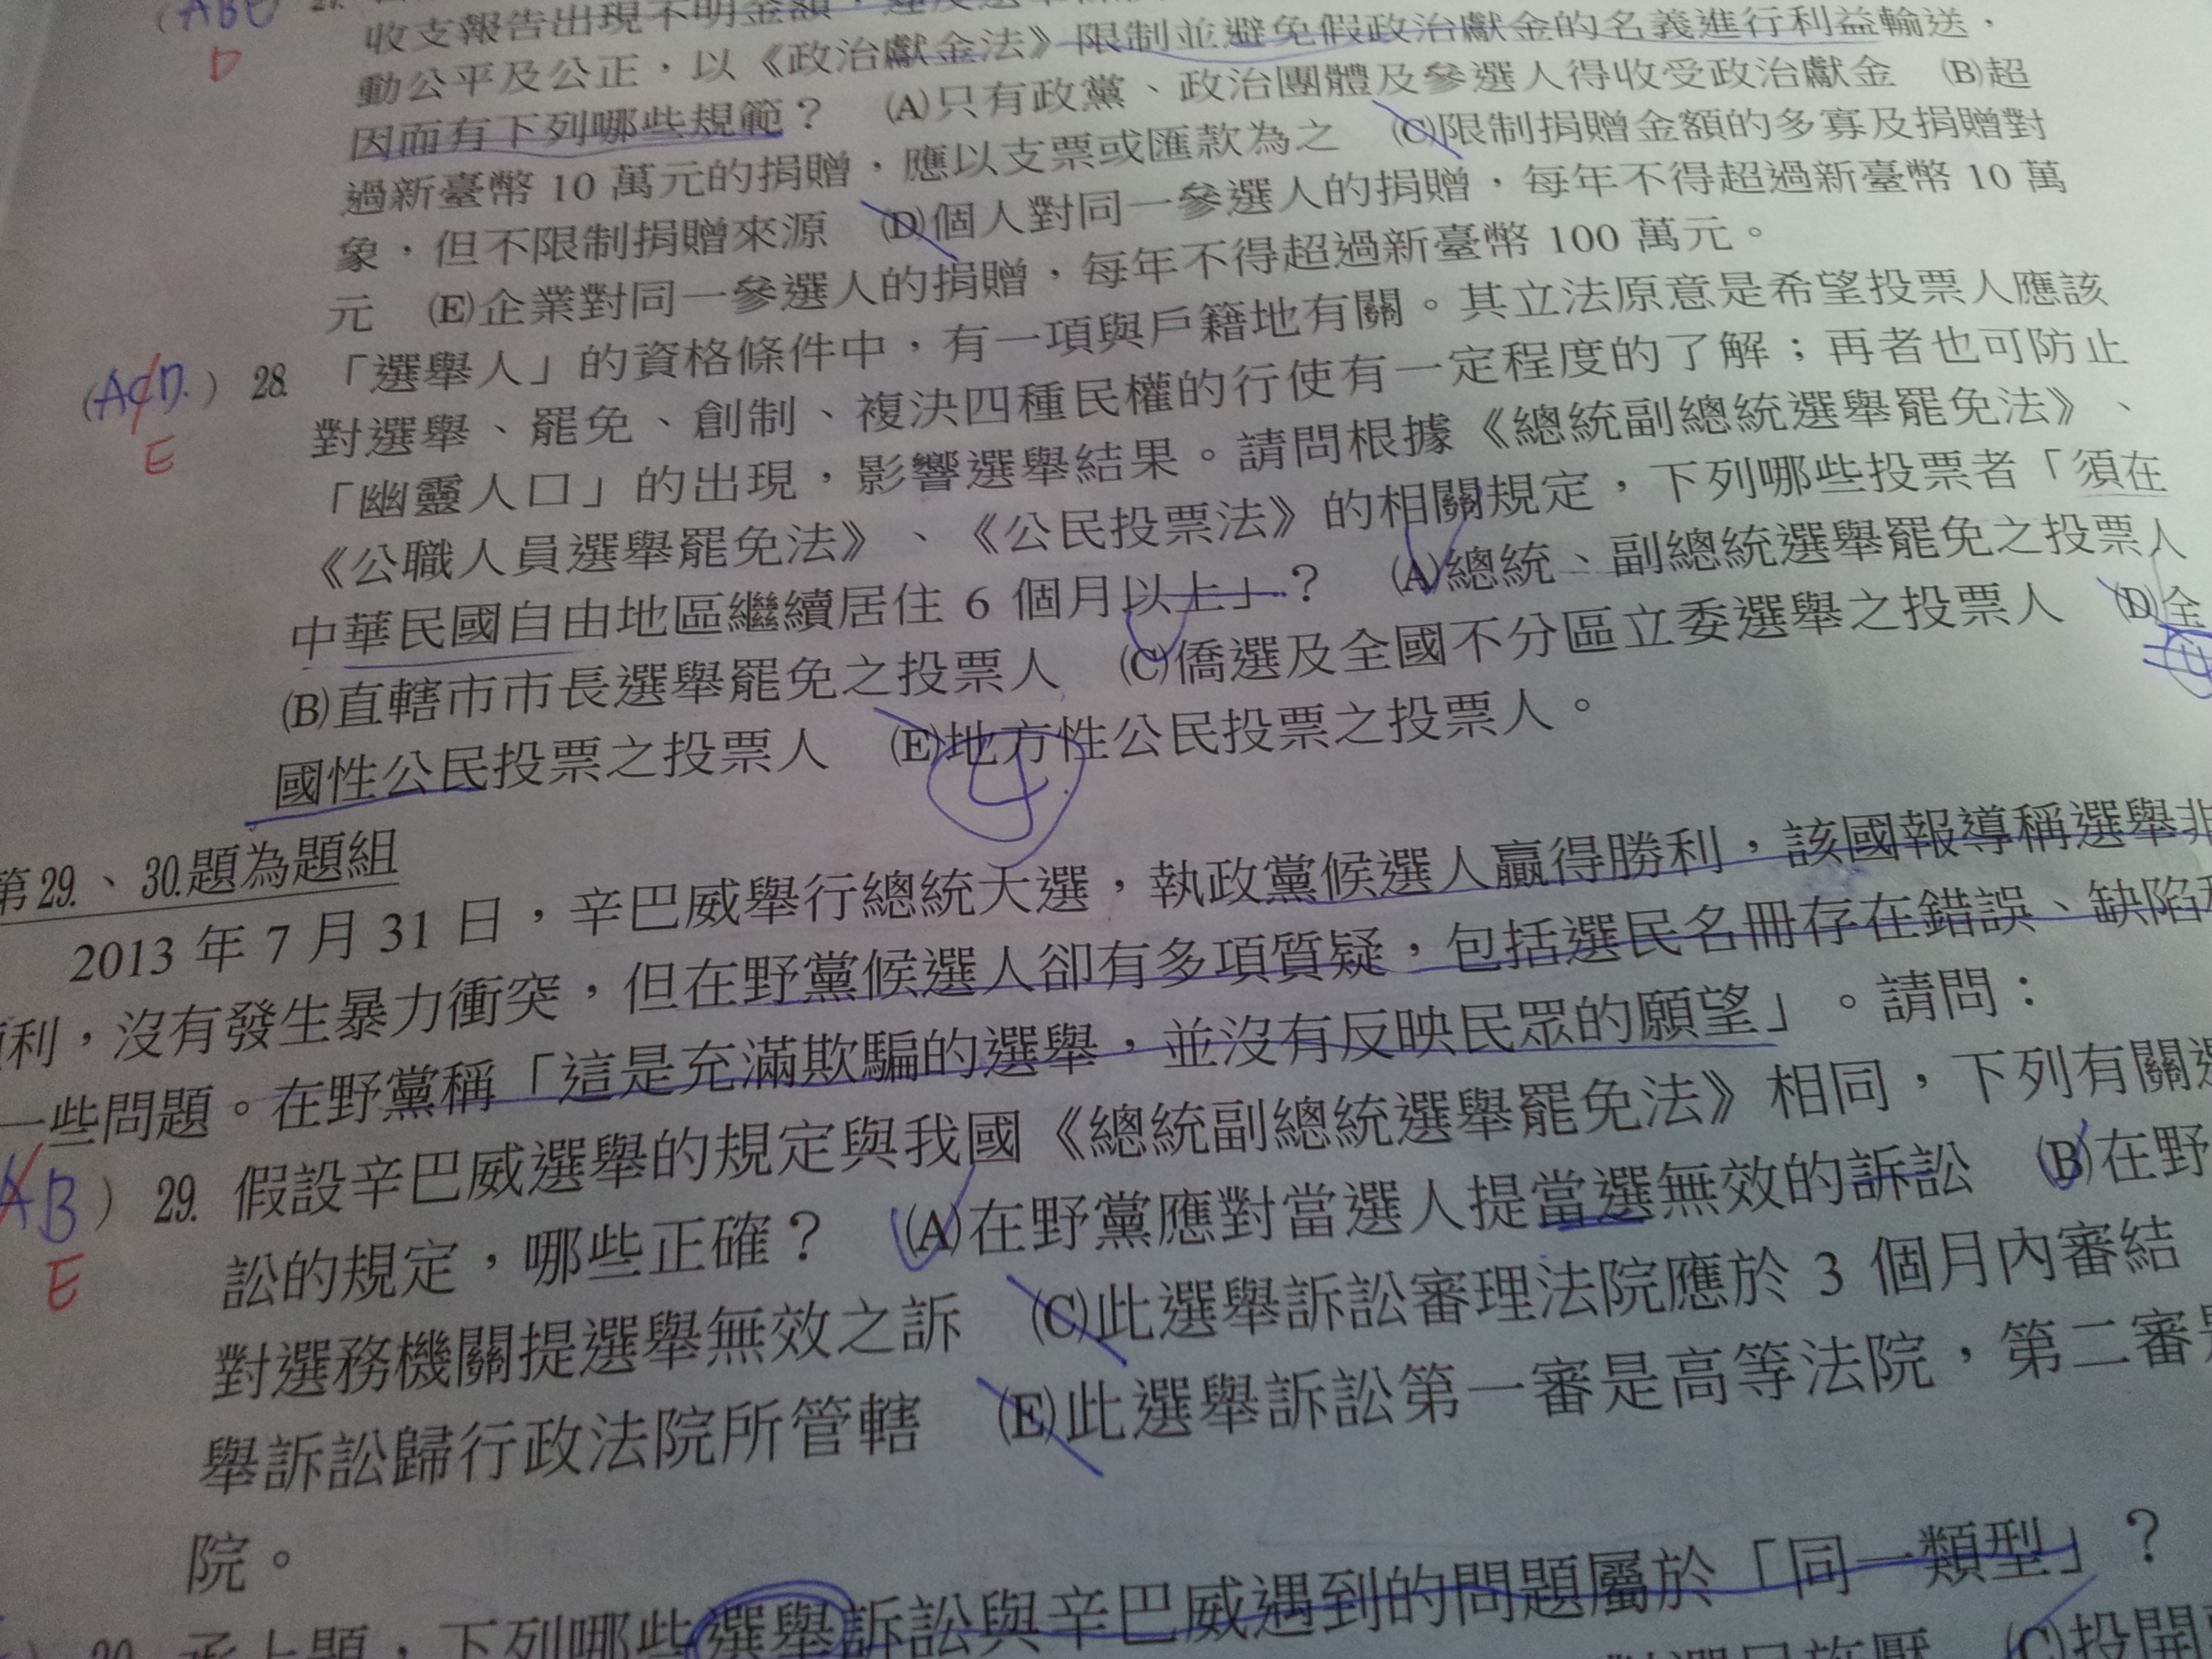 (ABE
D
收支報告出現不明金額,
動公平及公正,以《政治獻金法》限制並避免假政治獻金的名義進行利益輸送,
因而有下列哪些規範? (A)只有政黨、政治團體及參選人得收受政治獻金 (B)超
過新臺幣 10 萬元的捐贈,應以支票或匯款為之 (C)限制捐贈金額的多寡及捐贈對
象,但不限制捐贈來源 (D)個人對同一參選人的捐贈,每年不得超過新臺幣 10 萬
元 (E)企業對同一參選人的捐贈,每年不得超過新臺幣 100 萬元。
(ACD.) 28. 「選舉人」的資格條件中,有一項與戶籍地有關。其立法原意是希望投票人應該
E
對選舉、罷免、創制、複決四種民權的行使有一定程度的了解;再者也可防止
「幽靈人口」的出現,影響選舉結果。請問根據《總統副總統選舉罷免法》、
《公職人員選舉罷免法》、《公民投票法》的相關規定,下列哪些投票者「須在
中華民國自由地區繼續居住 6 個月以上」? (A)總統、副總統選舉罷免之投票人
(B)直轄市市長選舉罷免之投票人 (C)僑選及全國不分區立委選舉之投票人 (D)全
國性公民投票之投票人 (E)地方性公民投票之投票人。
第29.、30.題為題組
2013 年 7 月 31 日,辛巴威舉行總統大選,執政黨候選人贏得勝利,該國報導稱選舉非
利,沒有發生暴力衝突,但在野黨候選人卻有多項質疑,包括選民名冊存在錯誤、缺陷
一些問題。在野黨稱「這是充滿欺騙的選舉,並沒有反映民眾的願望」。請問:
AB) 29. 假設辛巴威選舉的規定與我國《總統副總統選舉罷免法》相同,下列有關選
E
訟的規定,哪些正確? (A)在野黨應對當選人提當選無效的訴訟 (B)在野
對選務機關提選舉無效之訴 (C)此選舉訴訟審理法院應於 3 個月內審結
舉訴訟歸行政法院所管轄 (E)此選舉訴訟第一審是高等法院,第二審是
院。
) 30. 承上題,下列哪些選舉訴訟與辛巴威遇到的問題屬於「同一類型」?
對選民施壓 (C)投開